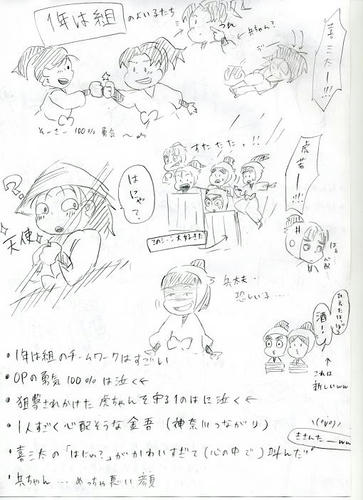 1年は組のよい子たち
喜三太ー!!!
ゆーきー100%勇気 〜
虎若ー!!!
すたたた。!!
はにゃ?
天使
このシーン大好きだ
兵太夫…
恐しい子…
酒!
これは
新しいww
・1年は組のチームワークはすごい
・OPの勇気100%は泣く
・狙撃されかけた虎ちゃんを守る1のはに泣く
・1人すごく心配そうな金吾(神奈川つながり)
・喜三太の「はにゃ?」がかわいすぎて(心の中で)叫んだ
・兵ちゃん…めっちゃ悪い顔